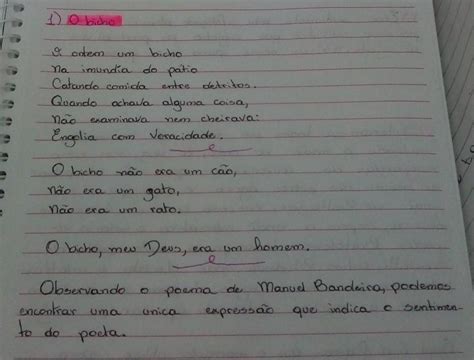 1) O bicho
odem um bicho
na imundia do pátio
Catando comida entre detritos.
Quando achava alguma coisa,
não examinava nem cheirava:
Engolia com veracidade.
O bicho não era um cão,
não era um gato,
não era um rato.
O bicho, meu Deus, era um homem.
Observando o poema de Manuel Bandeira, podemos
encontrar uma unica expressão que indica o sentimen-
to do poeta.